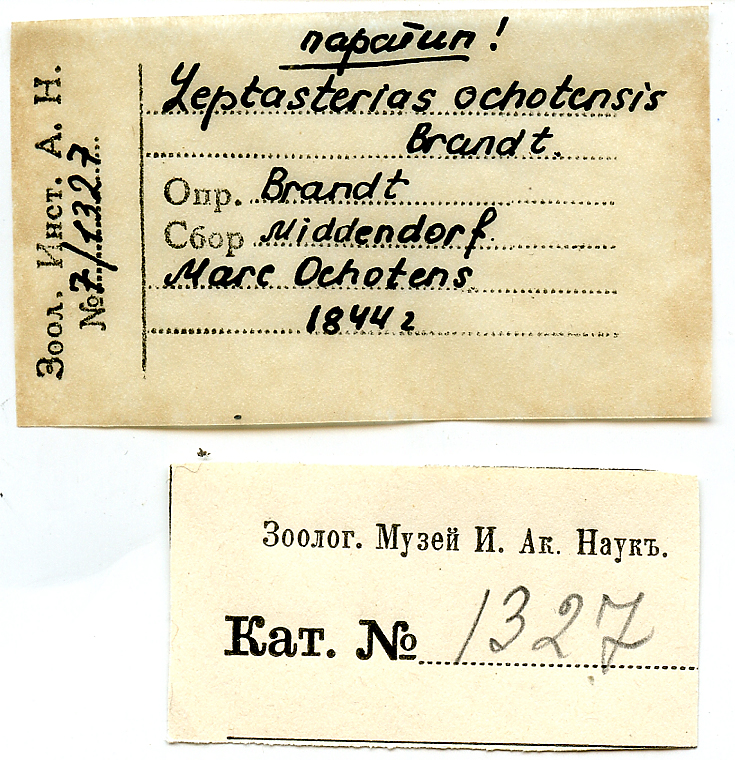 паратип!
Leptasterias ochotensis
Brandt.
Опр. Brandt
Сбор Middendorf
Marc Ochotens
1844 г
Зоол. Инст. А. Н.
№ 7/1327
Зоолог. Музей И. Ак. Наукъ.
Кат. № 1327